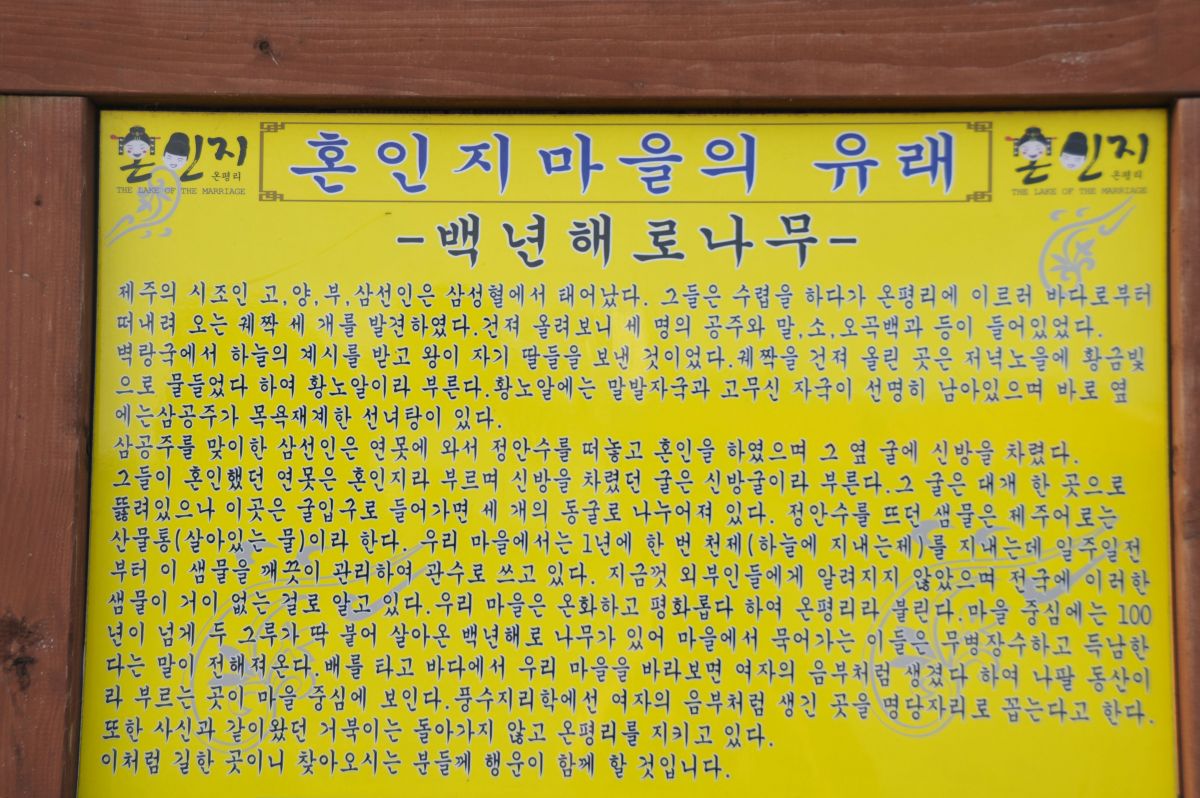 혼인지
온평리
THE LAKE OF THE MARRIAGE
혼인지마을의 유래
혼인지
온평리
THE LAKE OF THE MARRIAGE
-백년해로나무-
제주의 시조인 고,양,부,삼선인은 삼성혈에서 태어났다. 그들은 수렵을 하다가 온평리에 이르러 바다로부터
떠내려 오는 궤짝 세 개를 발견하였다.건져 올려보니 세 명의 공주와 말,소,오곡백과 등이 들어있었다.
벽랑국에서 하늘의 계시를 받고 왕이 자기 딸들을 보낸 것이었다.궤짝을 건져 올린 곳은 저녁노을에 황금빛
으로 물들었다 하여 황노알이라 부른다.황노알에는 말발자국과 고무신 자국이 선명히 남아있으며 바로 옆
에는삼공주가 목욕재계한 선녀탕이 있다.
삼공주를 맞이한 삼선인은 연못에 와서 정안수를 떠놓고 혼인을 하였으며 그 옆 굴에 신방을 차렸다.
그들이 혼인했던 연못은 혼인지라 부르며 신방을 차렸던 굴은 신방굴이라 부른다.그 굴은 대개 한 곳으로
뚫려있으나 이곳은 굴입구로 들어가면 세 개의 동굴로 나누어져 있다. 정안수를 뜨던 샘물은 제주어로는
산물통(살아있는 물)이라 한다. 우리 마을에서는 1년에 한 번 천제(하늘에 지내는제)를 지내는데 일주일전
부터 이 샘물을 깨끗이 관리하여 관수로 쓰고 있다. 지금껏 외부인들에게 알려지지 않았으며 전국에 이러한
샘물이 거이 없는 걸로 알고 있다.우리 마을은 온화하고 평화롭다 하여 온평리라 불린다.마을 중심에는 100
년이 넘게 두 그루가 딱 붙어 살아온 백년해로 나무가 있어 마을에서 묵어가는 이들은 무병장수하고 득남한
다는 말이 전해져온다.배를 타고 바다에서 우리 마을을 바라보면 여자의 음부처럼 생겼다 하여 나팔 동산이
라 부르는 곳이 마을 중심에 보인다.풍수지리학에선 여자의 음부처럼 생긴 곳을 명당자리로 꼽는다고 한다.
또한 사신과 같이왔던 거북이는 돌아가지 않고 온평리를 지키고 있다.
이처럼 길한 곳이니 찾아오시는 분들께 행운이 함께 할 것입니다.